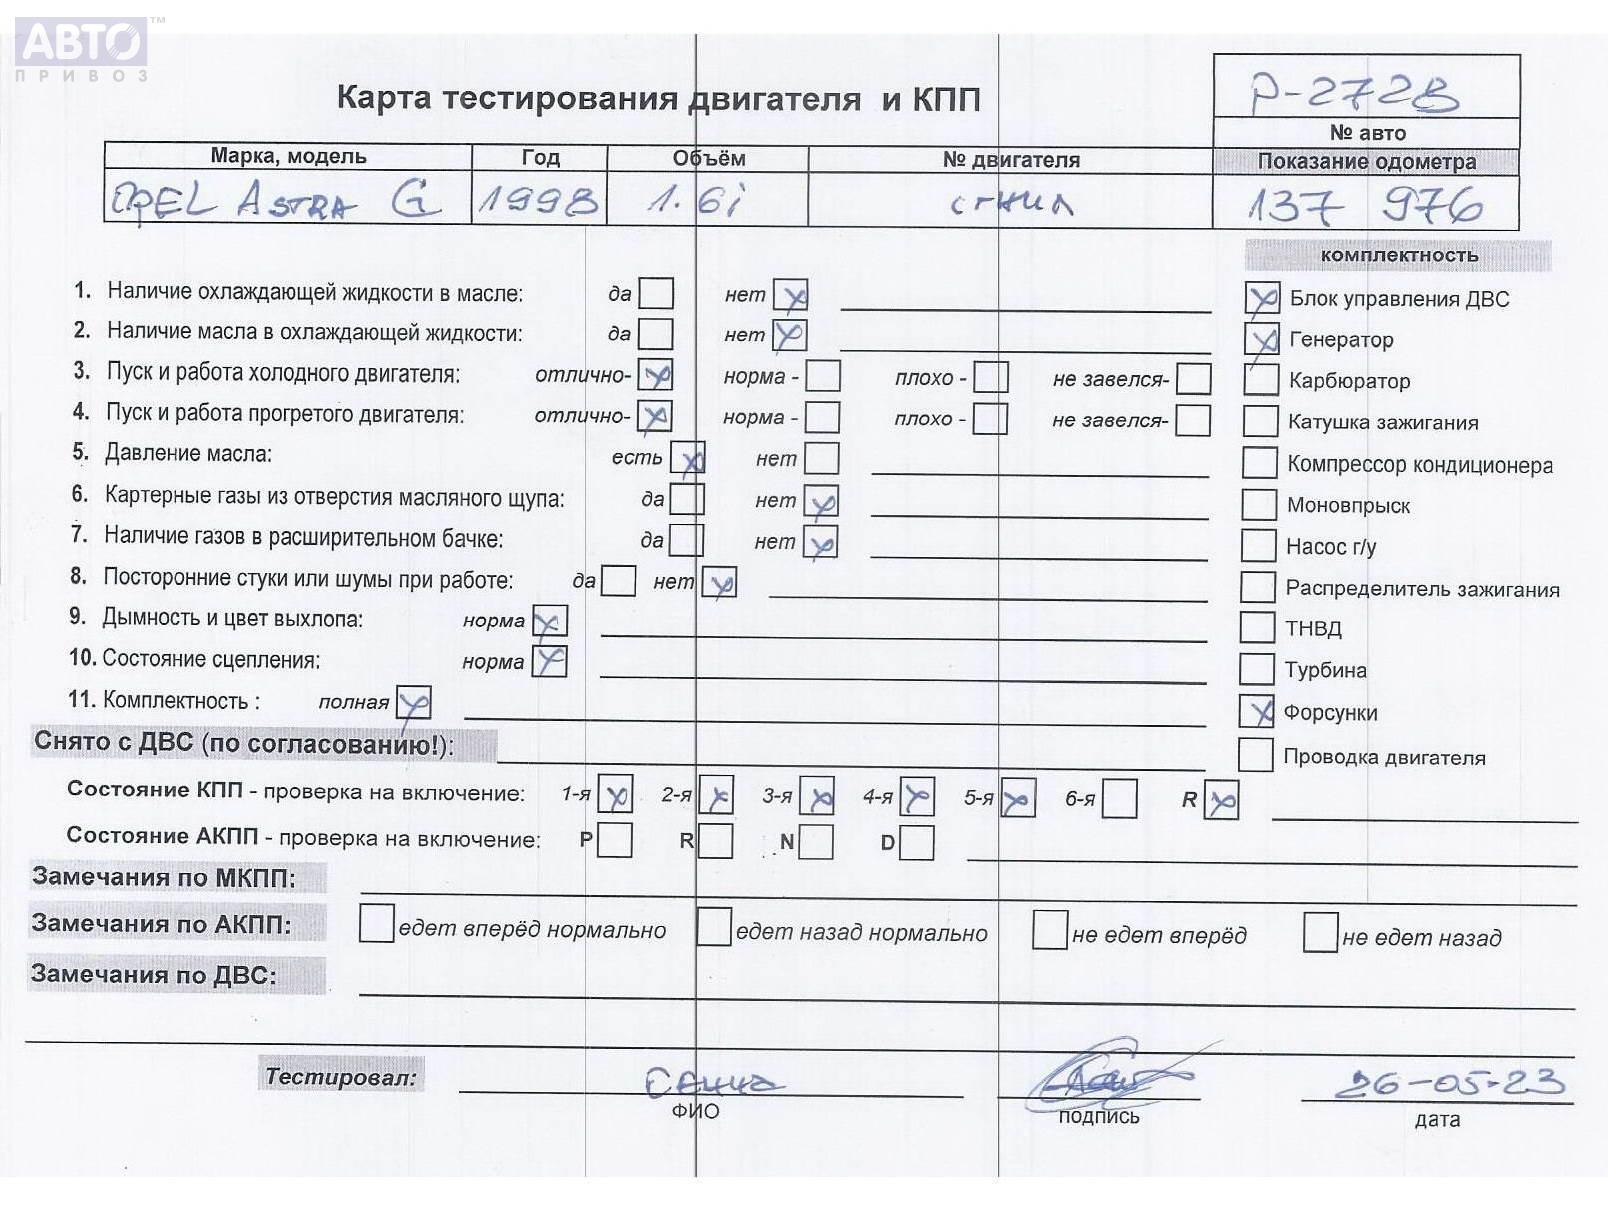 АВТО™
ПРИВОЗ
Карта тестирования двигателя и КПП
Р-2728
№ авто
Марка, модель Год Объём № двигателя Показание одометра
OPEL ASTRA G 1998 1.6i сгнил 137 976
комплектность
1. Наличие охлаждающей жидкости в масле: да нет Блок управления ДВС
2. Наличие масла в охлаждающей жидкости: да нет Генератор
3. Пуск и работа холодного двигателя: отлично- норма - плохо - не завелся- Карбюратор
4. Пуск и работа прогретого двигателя: отлично- норма - плохо - не завелся- Катушка зажигания
5. Давление масла: есть нет Компрессор кондиционера
6. Картерные газы из отверстия масляного щупа: да нет Моновпрыск
7. Наличие газов в расширительном бачке: да нет Насос г/у
8. Посторонние стуки или шумы при работе: да нет Распределитель зажигания
9. Дымность и цвет выхлопа: норма ТНВД
10. Состояние сцепления: норма Турбина
11. Комплектность : полная Форсунки
Снято с ДВС (по согласованию!): Проводка двигателя
Состояние КПП - проверка на включение: 1-я 2-я 3-я 4-я 5-я 6-я R
Состояние АКПП - проверка на включение: P R N D
Замечания по МКПП:
Замечания по АКПП: едет вперёд нормально едет назад нормально не едет вперёд не едет назад
Замечания по ДВС:
Тестировал: 26-05-23
ФИО подпись дата